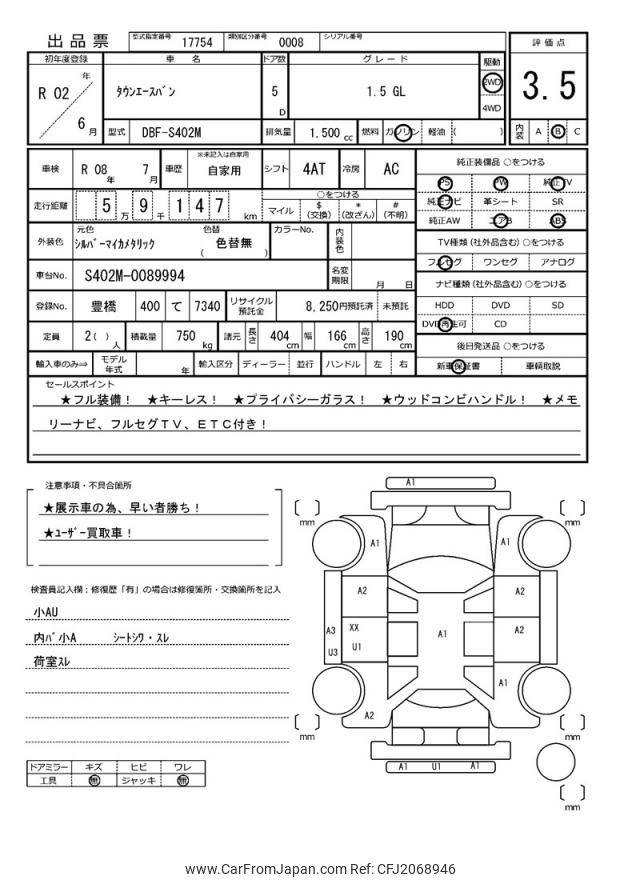 出品票 型式指定番号 17754 類別区分番号 0008 シリアル番号
初年度登録 車 名 ドア数 グレード 駆動 評価点
R 02 年 6 月 タウンエースバン 5 D 1.5 GL 2WD 4WD 3.5
型式 DBF-S402M 排気量 1.500 cc 燃料 ガソリン 軽油 ( ) 内装 A B C
車検 R 08 年 7 月 車歴 ※未記入は自家用 自家用 シフト 4AT 冷房 AC
走行距離 5 万 9 千 1 4 7 km ○をつける マイル $ (交換) * (改ざん) # (不明)
外装色 元色 シルバーマイカメタリック 色替 ( 色替無 ) カラーNo. 内装色
車台No. S402M-0089994 名変期限 月 日
登録No. 豊橋 400 て 7340 リサイクル預託金 8,250円預託済 未預託
定員 2( ) 人 積載量 750 kg 諸元 長さ 404 cm 幅 166 cm 高さ 190 cm
輸入車のみ⇒ モデル年式 年 輸入区分 ディーラー 並行 ハンドル 左 右
純正装備品 ○をつける
PS PW 純正TV
純正ナビ 革シート SR
純正AW エアB ABS
TV種類 (社外品含む) ○をつける
フルセグ ワンセグ アナログ
ナビ種類 (社外品含む) ○をつける
HDD DVD SD
DVD再生可 CD
後日発送品 ○をつける
新車保証書 車輌取説
セールスポイント
★フル装備! ★キーレス! ★プライバシーガラス! ★ウッドコンビハンドル! ★メモ
リーナビ、フルセグTV、ETC付き!
注意事項・不具合箇所
★展示車の為、早い者勝ち!
★ユーザー買取車!
検査員記入欄:修復歴「有」の場合は修復箇所・交換箇所を記入
小AU
内バ小A シートシワ・スレ
荷室スレ
ドアミラー キズ ヒビ ワレ
工具 無 ジャッキ 無
A1
[ ] mm [ ] mm
A1 A1
A2 A2
A3 XX A1 A2
U3 U1
A1
A2
[ ] mm [ ] mm
A1 U1 A1
[ ] mm
www.CarFromJapan.com Ref: CFJ2068946